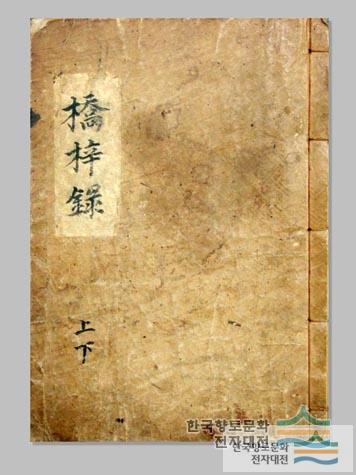 橋梓錄
上下
한국향토문화
전자대전
한국향토문화
전자대전